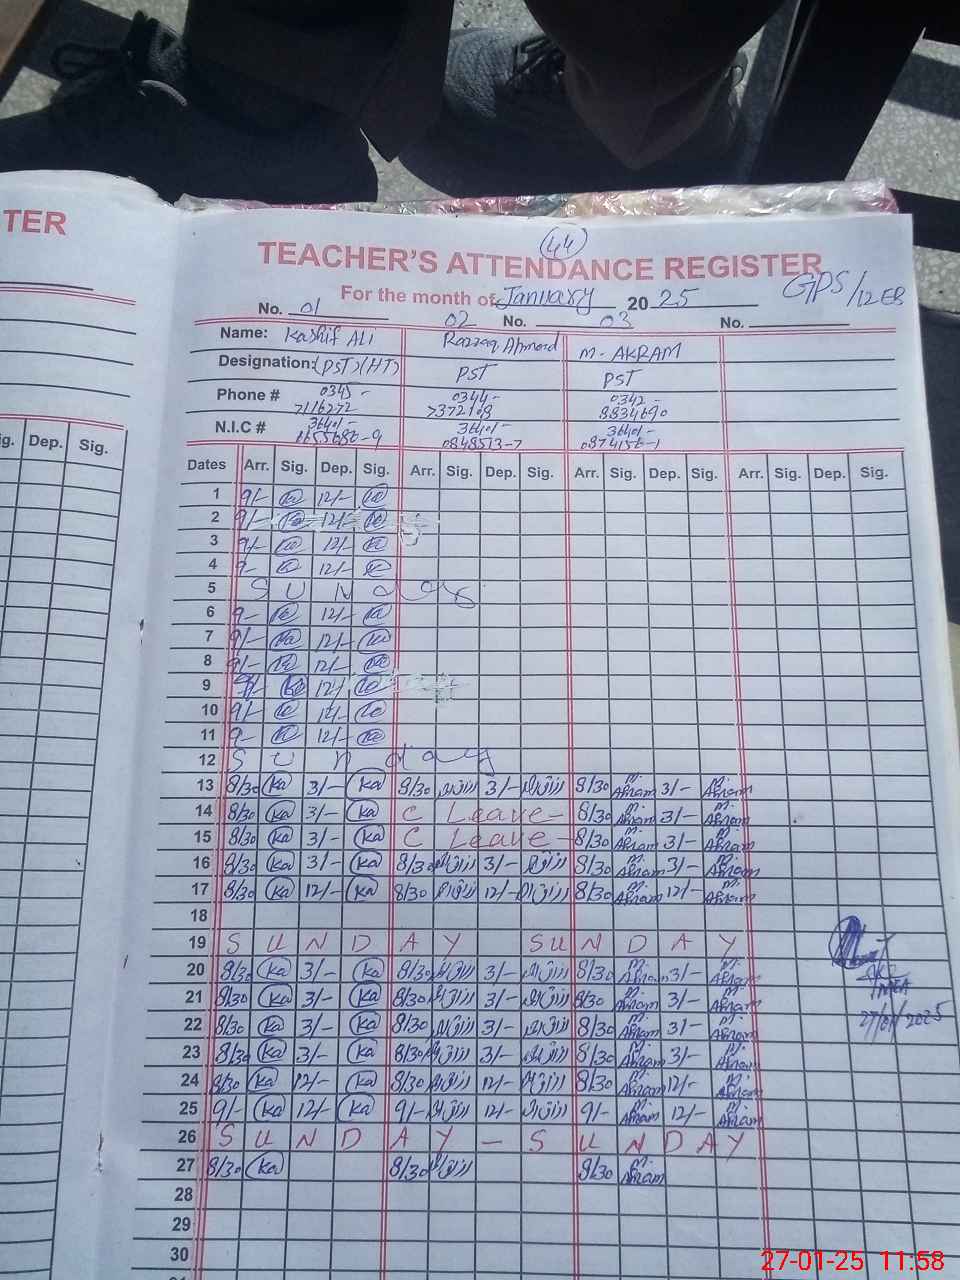 TER
44
TEACHER'S ATTENDANCE REGISTER
For the month of January 20 25 GPS/12EB
No. 01 02 No. 03 No.
Name: Kashif Ali Razzaq Ahmad M. AKRAM
Designation: (PST)(HT) PST PST
Phone # 0345- 0344- 0342-
7116272 7372108 8834690
N.I.C # 36401- 36401- 36401-
0848513-7 0874156-1
ig. Dep. Sig.
Dates Arr. Sig. Dep. Sig. Arr. Sig. Dep. Sig. Arr. Sig. Dep. Sig. Arr. Sig. Dep. Sig.
1 9/- Ka 12/- Ka
2 9/- Ka 12/- Ka
3 9/- Ka 12/- Ka
4 9/- Ka 12/- Ka
5 S U N d a y
6 9/- Ka 12/- Ka
7 9/- Ka 12/- Ka
8 9/- Ka 12/- Ka
9 9/- Ka 12/- Ka
10 9/- Ka 12/- Ka
11 9/- Ka 12/- Ka
12 S U n d a y
13 8/30 Ka 3/- Ka 8/30 رزاق 3/- رزاق 8/30 M. Akram 3/- M. Akram
14 8/30 Ka 3/- Ka C Leave- 8/30 M. Akram 3/- M. Akram
15 8/30 Ka 3/- Ka C Leave- 8/30 M. Akram 3/- M. Akram
16 8/30 Ka 3/- Ka 8/30 رزاق 3/- رزاق 8/30 M. Akram 3/- M. Akram
17 8/30 Ka 12/- Ka 8/30 رزاق 12/- رزاق 8/30 M. Akram 12/- M. Akram
18
19 S U N D A Y S U N D A Y
20 8/30 Ka 3/- Ka 8/30 رزاق 3/- رزاق 8/30 M. Akram 3/- M. Akram
21 8/30 Ka 3/- Ka 8/30 رزاق 3/- رزاق 8/30 M. Akram 3/- M. Akram
22 8/30 Ka 3/- Ka 8/30 رزاق 3/- رزاق 8/30 M. Akram 3/- M. Akram
23 8/30 Ka 3/- Ka 8/30 رزاق 3/- رزاق 8/30 M. Akram 3/- M. Akram
24 8/30 Ka 12/- Ka 8/30 رزاق 12/- رزاق 8/30 M. Akram 12/- M. Akram
25 9/- Ka 12/- Ka 9/- رزاق 12/- رزاق 9/- M. Akram 12/- M. Akram
26 S U N D A Y - S U N D A Y
27 8/30 Ka 8/30 رزاق 8/30 M. Akram
28
29
30
MEA
27/01/2025
27-01-25 11:58